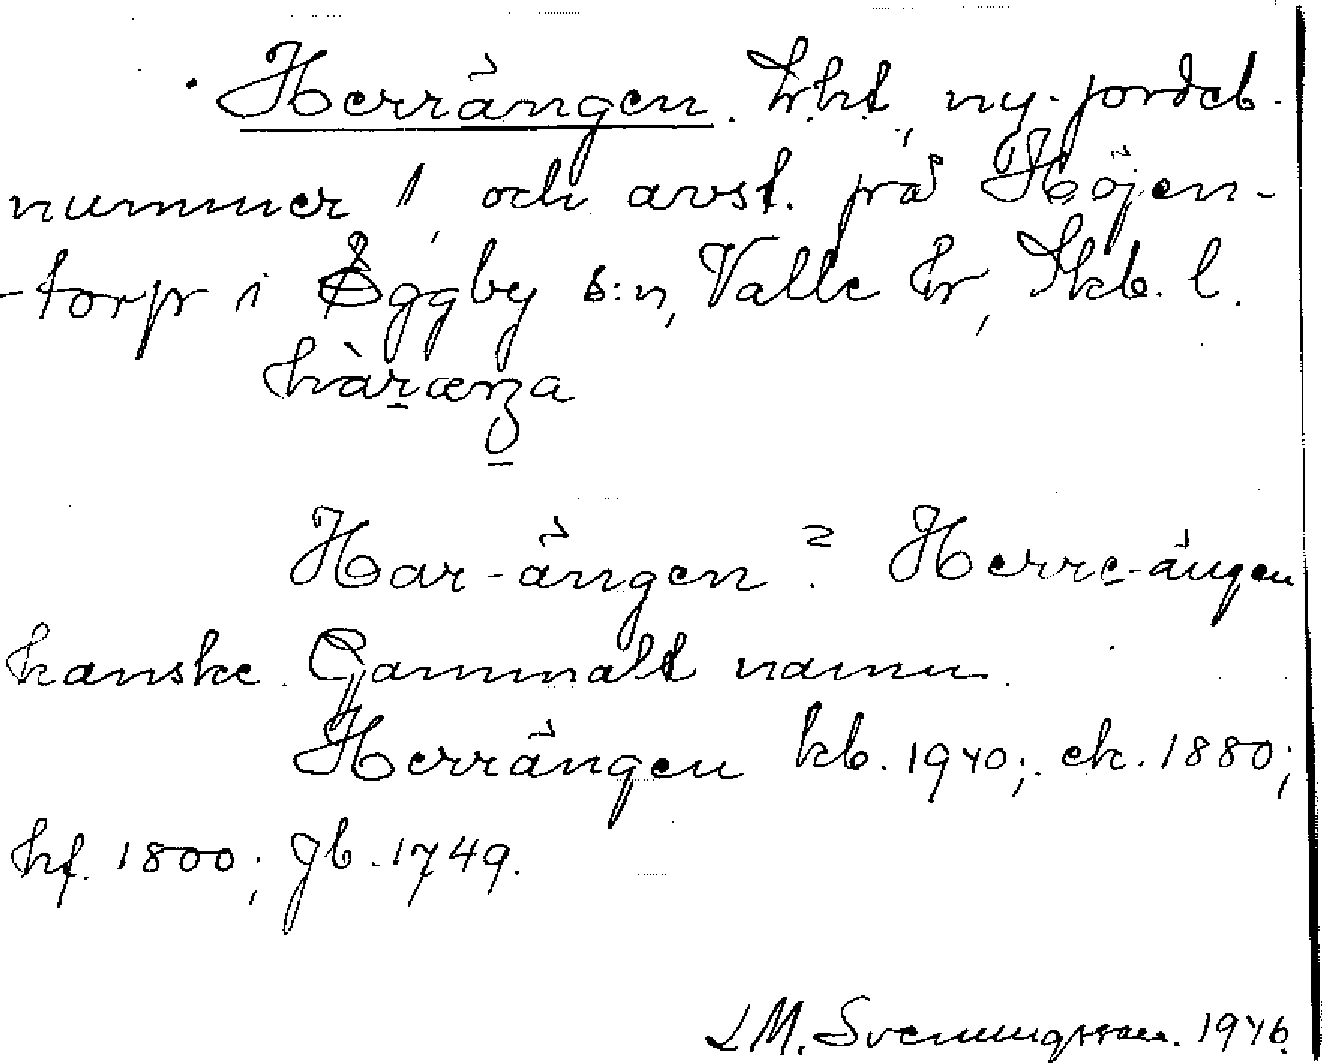 Herrängen. Lht, ny. jordeb.
nummer 1, och avst. på Höjen-
-torp i Eggby s:n, Valle hr, Skb. l.
hàrænʒa
Har-ängen? Herre-ängen
kanske. Gammalt namn.
Herrängen kb. 1940; ek. 1880;
hf. 1800; jb. 1749.
LM. Svenningsson. 1946.